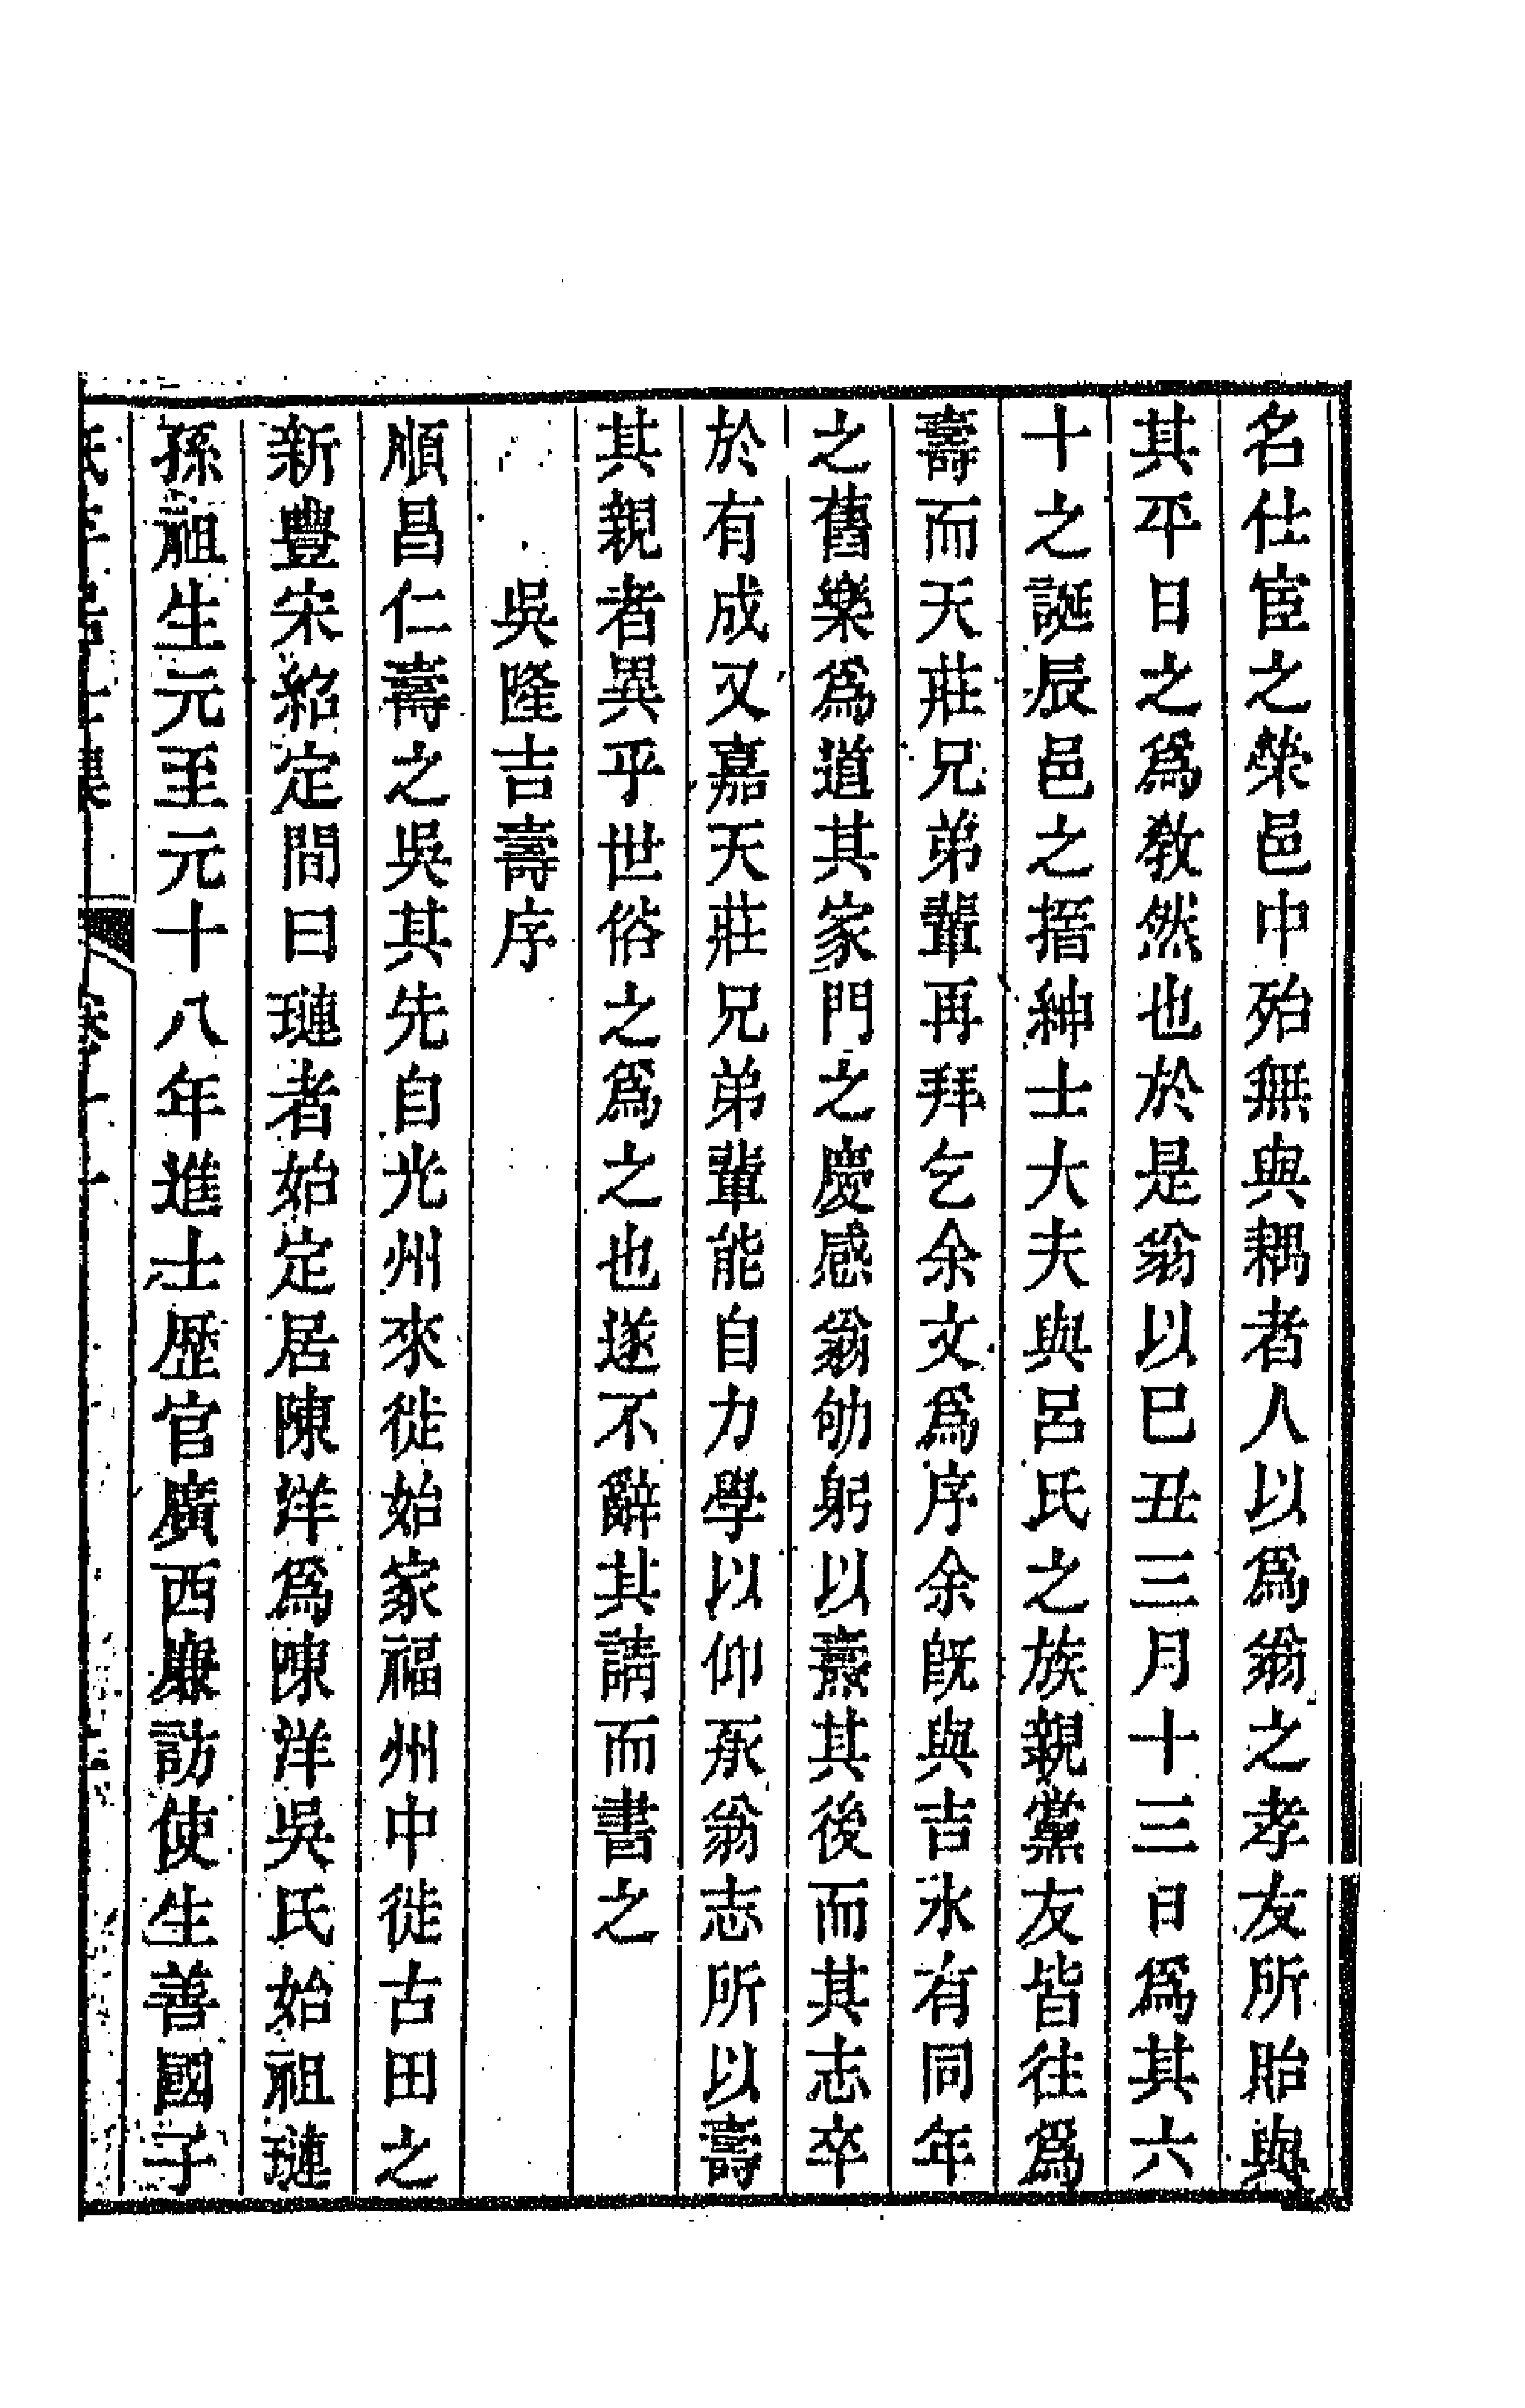 名仕宦之榮邑中殆無與耦者人以爲翁之孝友所貽與
其平日之爲敎然也於是翁以巳丑三月十三日爲其六
十之誕辰邑之搢紳士大夫與呂氏之族親黨友皆往爲
壽而天莊兄弟輩再拜乞余文爲序余旣與吉水有同年
之舊樂爲道其家門之慶感翁劬躬以燾其後而其志卒
於有成又嘉天莊兄弟輩能自力學以仰承翁志所以壽
其親者異乎世俗之爲之也遂不辭其請而書之
吳隆吉壽序
順昌仁壽之吳其先自光州來徙始家福州中徙古田之
新豐宋紹定間曰璉者始定居陳洋爲陳洋吳氏始祖璉
孫祖生元至元十八年進士歷官廣西廉訪使生善國子